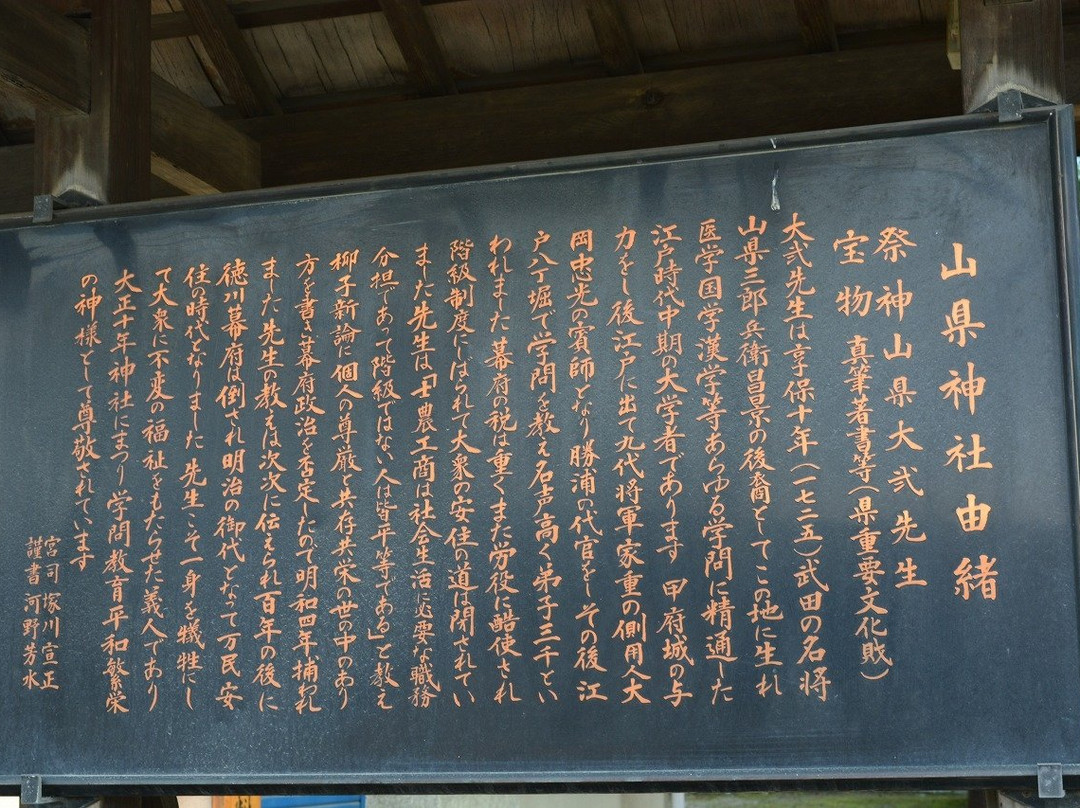 山県神社由緒
祭神山県大弐先生
宝物 真筆著書等(県重要文化敗)
大弐先生は享保十年(一七二五)武田の名将
山県三郎兵衛昌景の後裔としてこの地に生れ
医学国学漢学等あらゆる学問に精通した
江戸時代中期の大学者であります 甲府城の与
力をし後江戸に出て九代将軍家重の側用人大
岡忠光の賓師となり勝浦の代官をしその後江
戸八丁堀で学問を教え名声高く弟子三千とい
われました 幕府の税は重くまた労役に酷使され
階級制度にしばられて大衆の安住の道は閉されてい
ました先生は「士農工商は社会生活に必要な職務
分担であって階級ではない人は皆平等である」と教え
柳子新論に個人の尊厳と共存共栄の世の中のあり
方を書き幕府政治を否定したので明和四年捕われ
ました先生の教えは次次に伝えられ百年の後に
徳川幕府は倒され明治の御代となって万民安
住の時代となりました 先生こそ一身を犠牲にし
て大衆に不変の福祉をもたらせた義人であり
大正十年神社にまつり学問教育平和繁栄
の神様として尊敬されています
宮司 塚川宣正
謹書 河野芳水